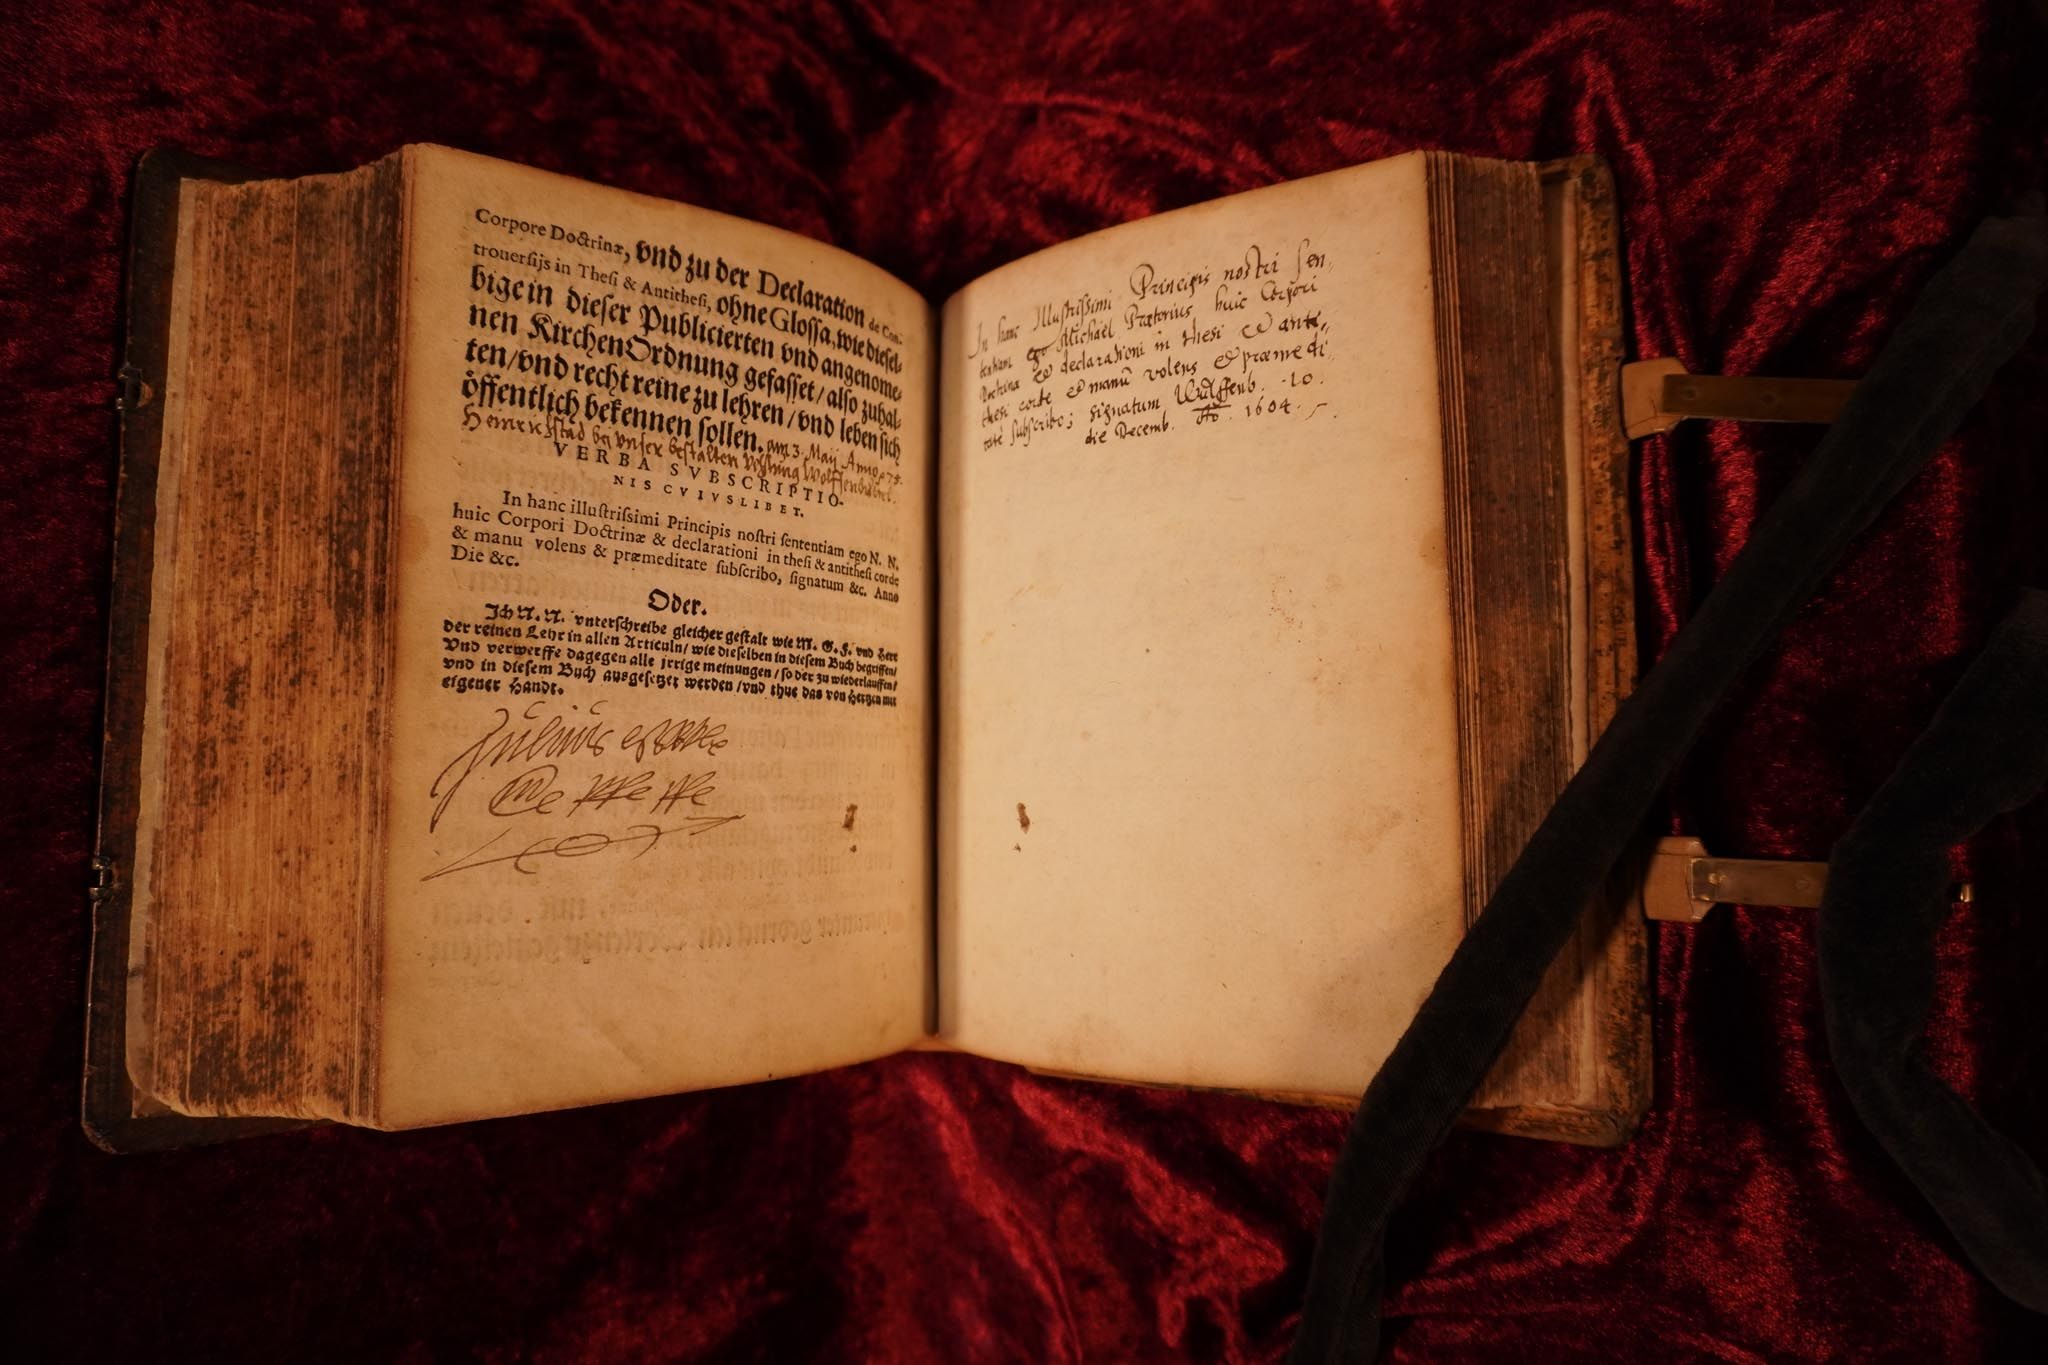 Corpore Doctrinæ, vnd zu der Declaration de Con-
trouersijs in Thesi & Antithesi, ohne Glossa, wie diesel-
bige in dieser Publicierten vnd angenome-
nen KirchenOrdnung gefasset / also zuhal-
ten / vnd recht reine zu lehren / vnd leben sich
öffentlich bekennen sollen. am 3. Maij Anno 78.
Heinrichstad bei vnser bestalten Vestung Wolffenbüttel.
VERBA SVBSCRIPTIO-
NIS CVIVSLIBET.
In hanc illustrissimi Principis nostri sententiam ego N. N.
huic Corpori Doctrinæ & declarationi in thesi & antithesi corde
& manu volens & præmeditate subscribo, signatum &c. Anno
Die &c.
Oder.
Ich N. N. vnterschreibe gleicher gestalt wie M. G. F. vnd Herr
der reinen Lehr in allen Articuln / wie dieselben in diesem Buch begriffen /
Vnd verwerffe dagegen alle jrrige meinungen / so der zu wiederlauffen /
vnd in diesem Buch ausgesetzet werden / vnd thue das von Hertzen mit
eigener Handt.
Julius
In hanc Illustrissimi Principis nostri sen-
tentiam ego Michaël Prætorius huic Corpori
Doctrinæ & declarationi in thesi & anti-
thesi corde & manu volens & præmedi-
tate subscribo; signatum Wulffenb. 10.
die Decemb. Ao. 1604.